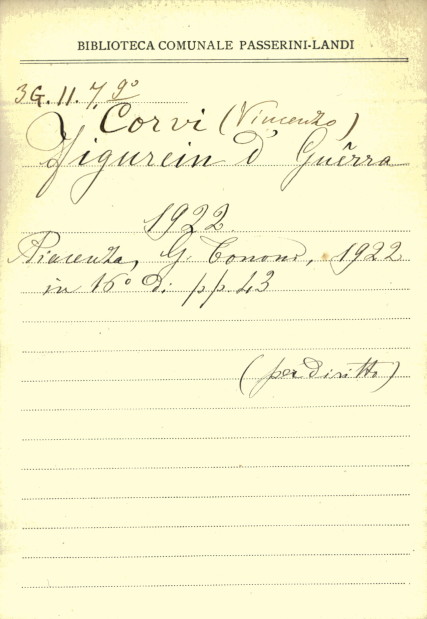 BIBLIOTECA COMUNALE PASSERINI-LANDI
3G. 11. 7, 9°
Corvi (Vincenzo)
Figurein d' Guêrra
1922.
Piacenza, G. Tononi, 1922
in 16° di pp. 43
(per diritto)